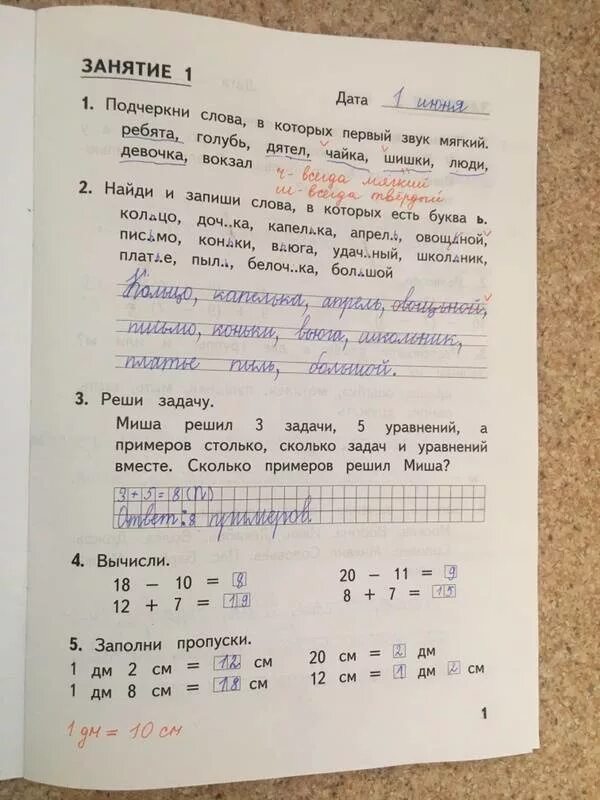 ЗАНЯТИЕ 1
Дата 1 июня
1. Подчеркни слова, в которых первый звук мягкий.
ребята, голубь, дятел, чайка, шишки, люди,
девочка, вокзал
ч - всегда мягкий
ш - всегда твёрдый
2. Найди и запиши слова, в которых есть буква ь.
кольцо, доч..ка, капелька, апрель, овощьной,
письмо, коньки, вьюга, удач..ный, школьник,
платье, пыль, белоч..ка, большой
Кольцо, капелька, апрель, овощьной,
письмо, коньки, вьюга, школьник,
платье пыль, большой.
3. Реши задачу.
Миша решил 3 задачи, 5 уравнений, а
примеров столько, сколько задач и уравнений
вместе. Сколько примеров решил Миша?
3+5=8(П)
Ответ:8 примеров
4. Вычисли.
18 - 10 = 8 20 - 11 = 9
12 + 7 = 19 8 + 7 = 15
5. Заполни пропуски.
1 дм 2 см = 12 см 20 см = 2 дм
1 дм 8 см = 18 см 12 см = 1 дм 2 см
1
1 дм = 10 см